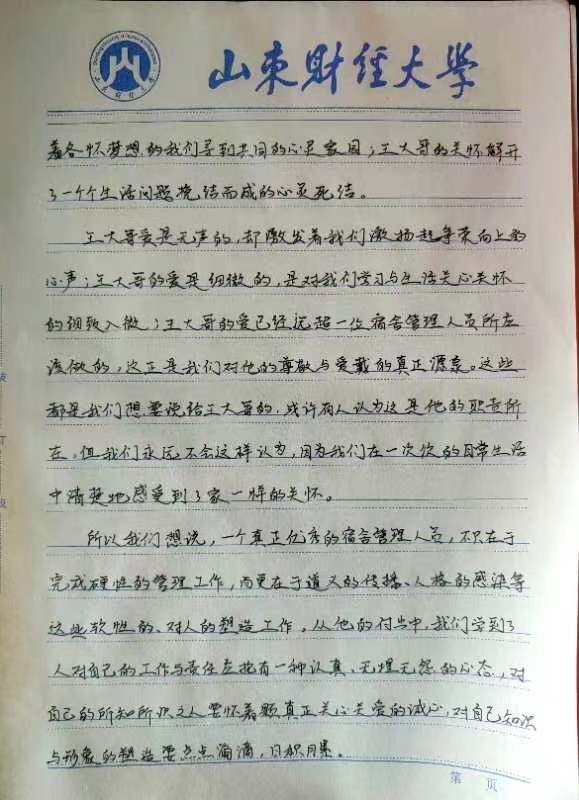 山东财经大学
着各怀梦想的我们寻到共同的心灵家园；王大哥的关怀解开
了一个个生活问题挽结而成的心灵死结。
王大哥爱是无声的，却激发着我们激扬起奔荣向上的
心声；王大哥的爱是细微的，是对我们学习与生活关心关怀
的细致入微；王大哥的爱已经远超一位宿舍管理人员所应
该做的，这正是我们对他的尊敬与爱戴的真正源泉。这些
都是我们想要说给王大哥的，或许有人认为这是他的职责所
在，但我们永远不会这样认为，因为我们在一次次的日常生活
中清楚地感受到了家一样的关怀。
所以我们想说，一个真正优秀的宿舍管理人员，不只在于
完成硬性的管理工作，而更在于道义的传播、人格的感染等
这些软性的、对人的塑造工作。从他的付出中，我们学到了
人对自己的工作与责任应抱有一种认真、无悔无怨的心态，对
自己的所知所识之人要怀着颗真正关心关爱的诚心，对自己知识
与形象的塑造要点点滴滴，日积月累。
第 页